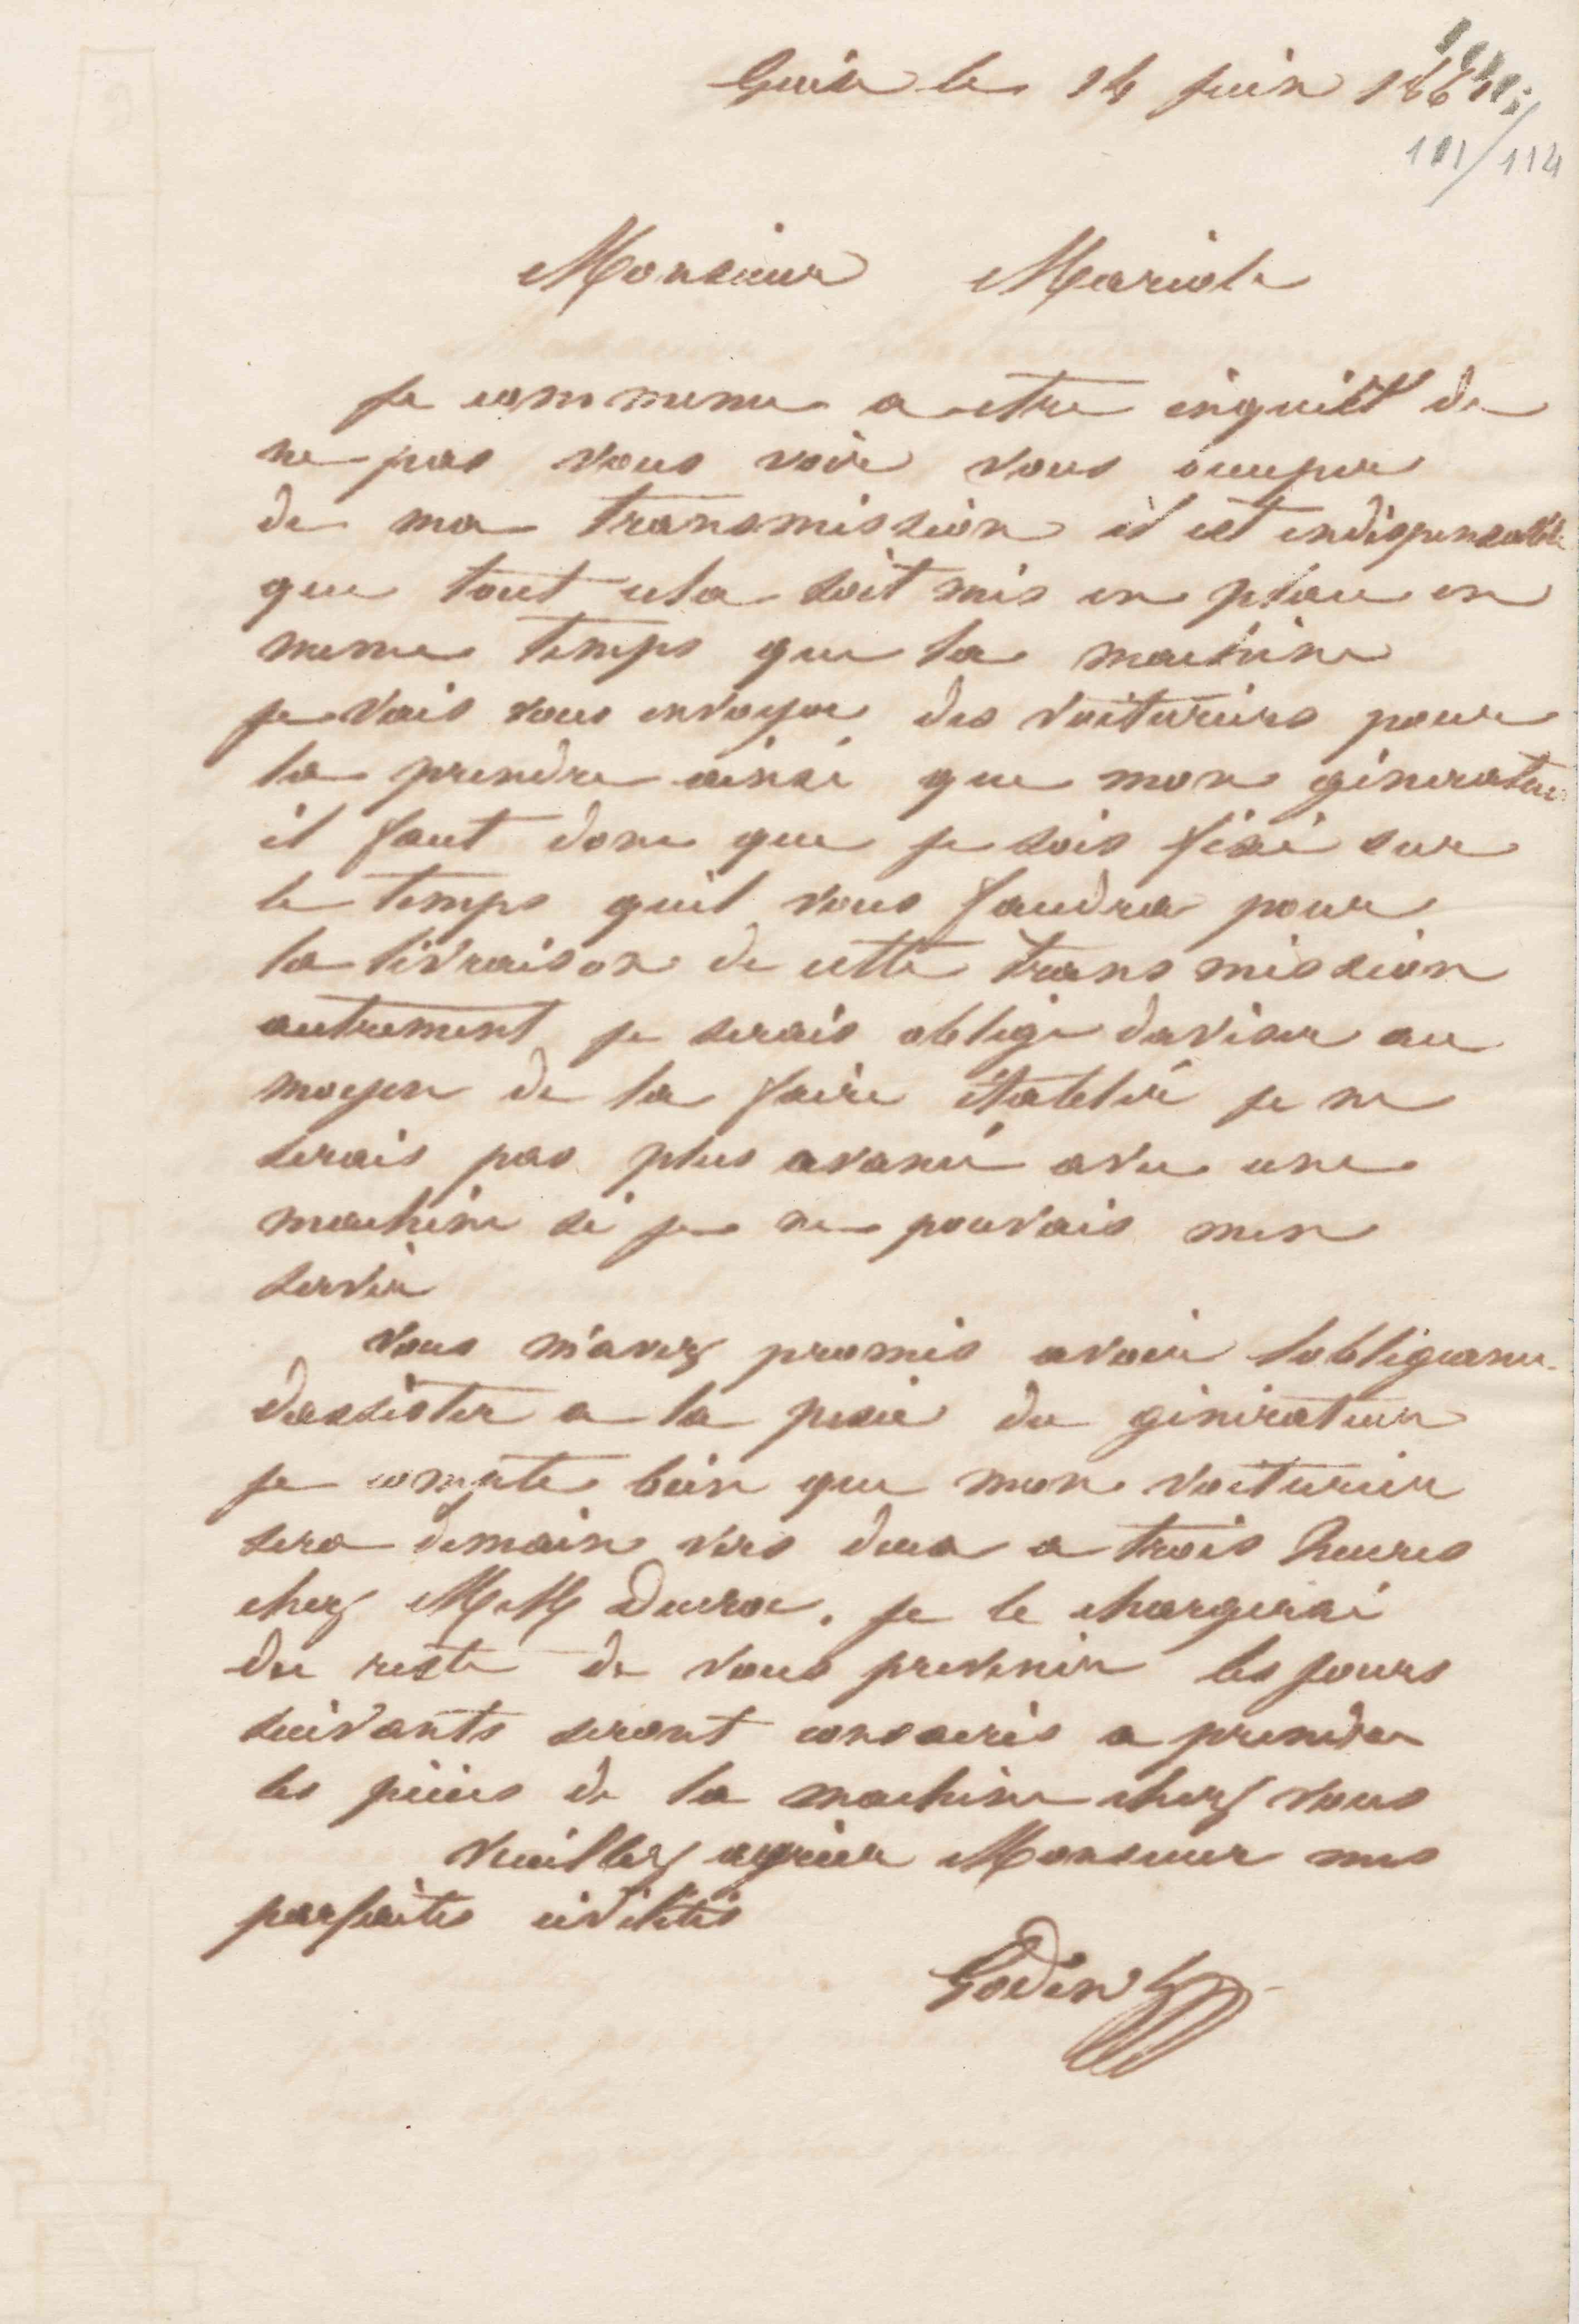 Guise le 14 juin 186
111/114
Monsieur Mariole
je commence a etre inquiet de
ne pas vous voir vous occuper
de ma transmission il est indispensable
que tout cela soit mis en place en
meme temps que la machine
je vais vous envoyer des voituriers pour
la prendre ainsi que mon générateur
il faut donc que je sois fixé sur
le temps quil vous faudra pour
la livraison de cette transmission
autrement je serais obligé daviser au
moyen de la faire établir je ne
serais pas plus avancé avec une
machine si je ne pouvais men
servir
vous m'avez promis avoir lobligeance
dassister a la pesée du générateur
je compte bien que mon voiturier
sera demain vers deux a trois heures
chez MM Ducroc. je le chargerai
du reste de vous prevenir les jours
suivants seront consacrés a prendre
les pièces de la machine chez vous
veuillez agréer Monsieur mes
parfaites civilités
Godin